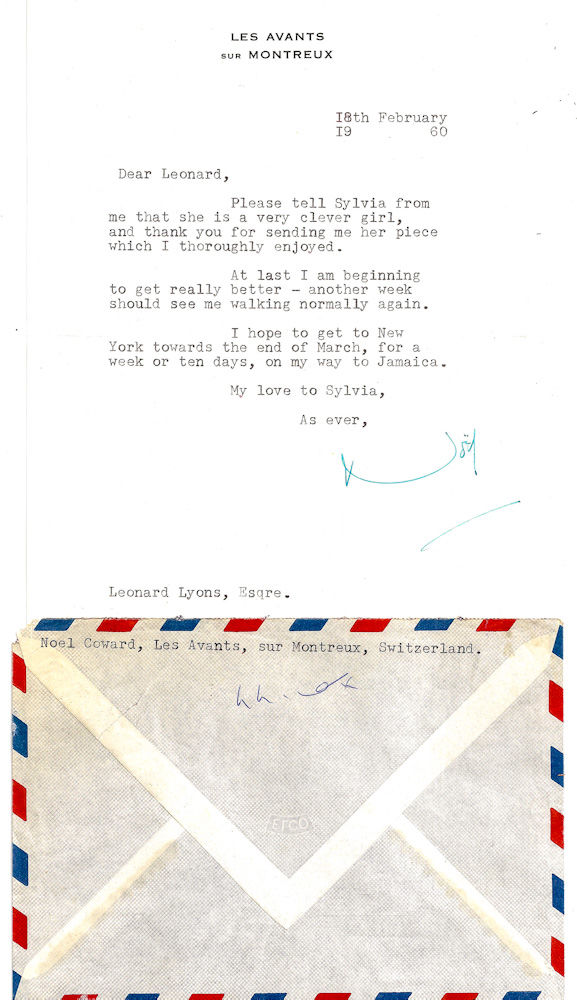 LES AVANTS
SUR MONTREUX
18th February
19 60
Dear Leonard,
Please tell Sylvia from
me that she is a very clever girl,
and thank you for sending me her piece
which I thoroughly enjoyed.
At last I am beginning
to get really better - another week
should see me walking normally again.
I hope to get to New
York towards the end of March, for a
week or ten days, on my way to Jamaica.
My love to Sylvia,
As ever,
Noël
Leonard Lyons, Esqre.
Noel Coward, Les Avants, sur Montreux, Switzerland.